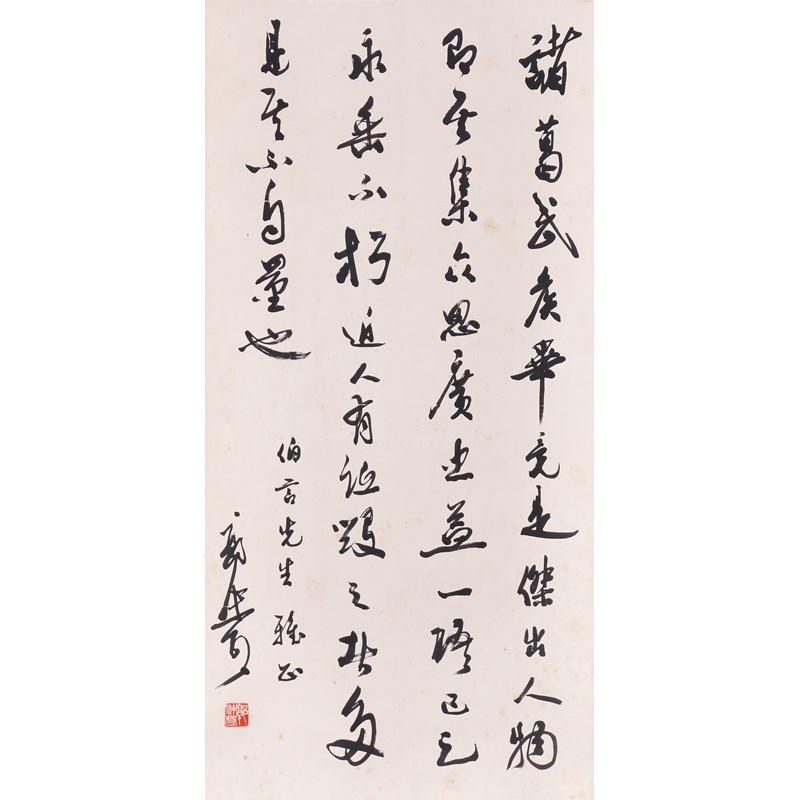 諸葛武侯畢竟是傑出人物
即其集众思廣忠益一語已足
永垂不朽近人有詆毀之者多
見其不自量也
伯言先生雅正
郭沫若